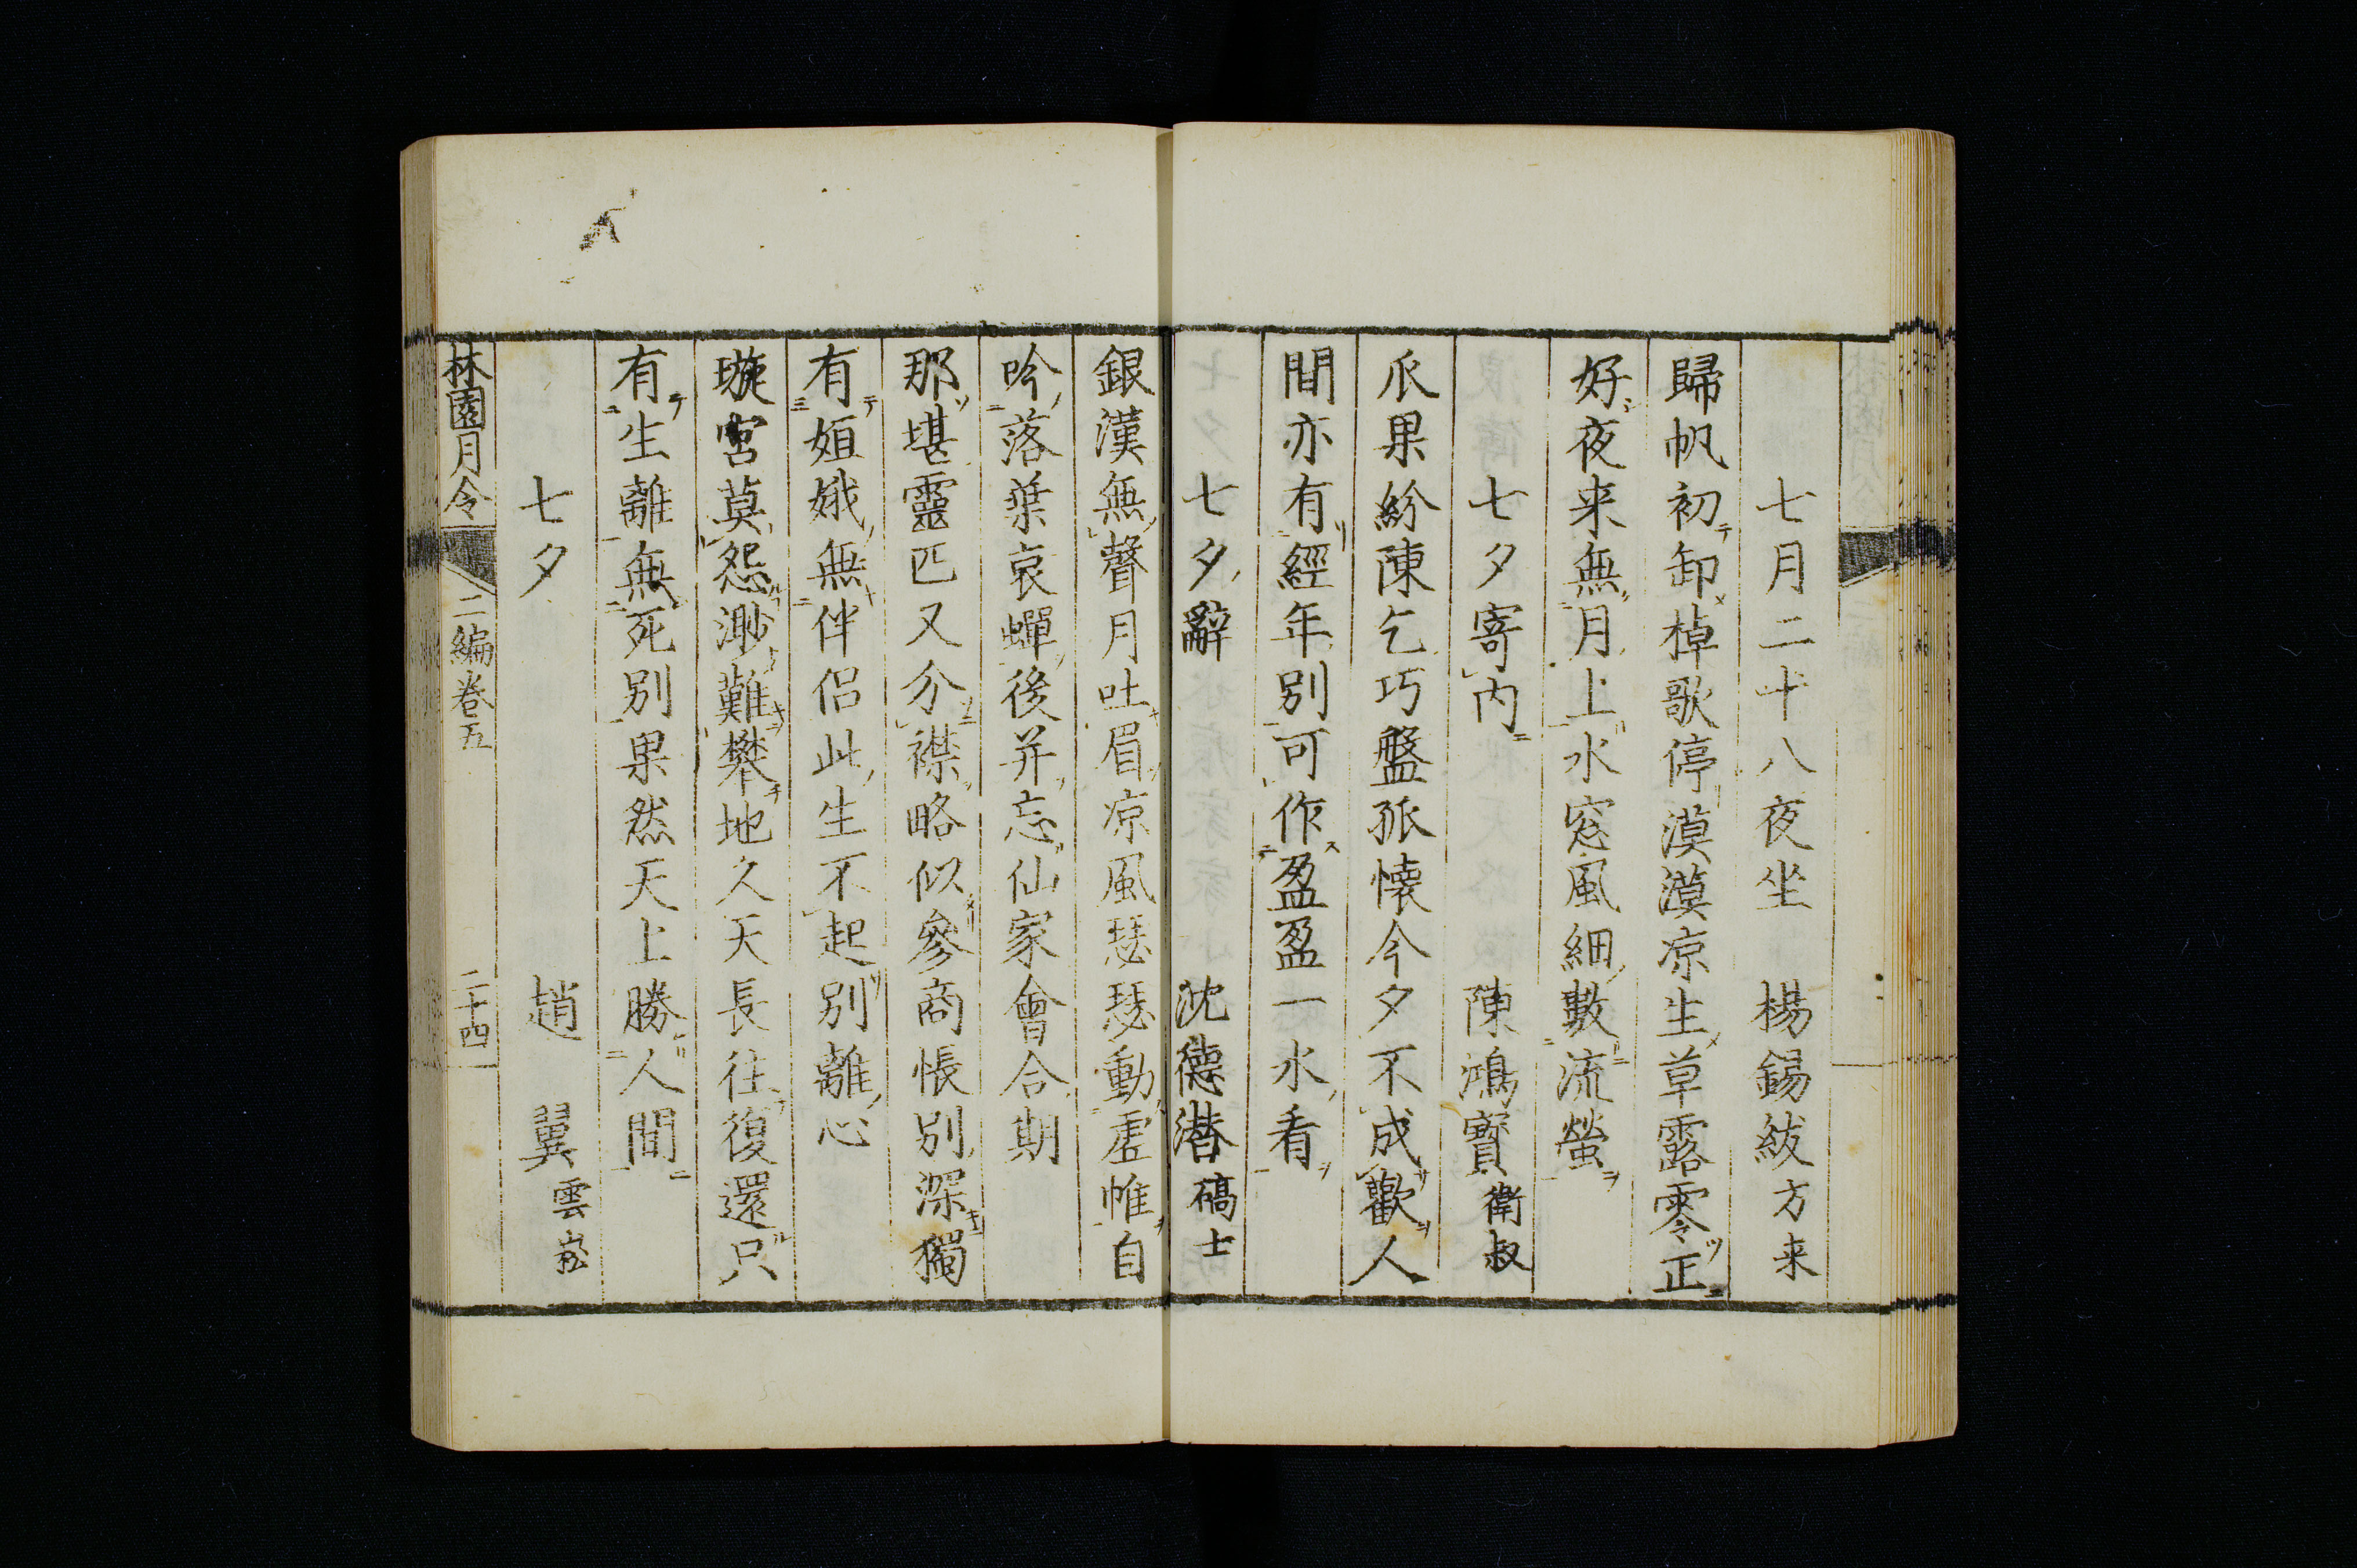 七月二十八夜坐　楊錫紱方来
歸帆初卸棹歌停漠漠凉生草露零正
好夜来無月上水窓風細數流螢
七夕寄内　陳鴻寳衛叔
瓜果紛陳乞巧盤孤懐今夕不成歡人
間亦有經年別可作盈盈一水看
七夕辭　沈德潜碻士
銀漢無聲月吐眉凉風瑟瑟動虚帷自
吟落葉哀蟬後并忘仙家會合期
那堪靈匹又分襟略似參商悵別深獨
有姮娥無伴侶此生不起別離心
璇宮莫怨渺難攀地久天長往復還只
有生離無死別果然天上勝人間
七夕　趙　翼雲崧
林園月令　二編卷五　二十四